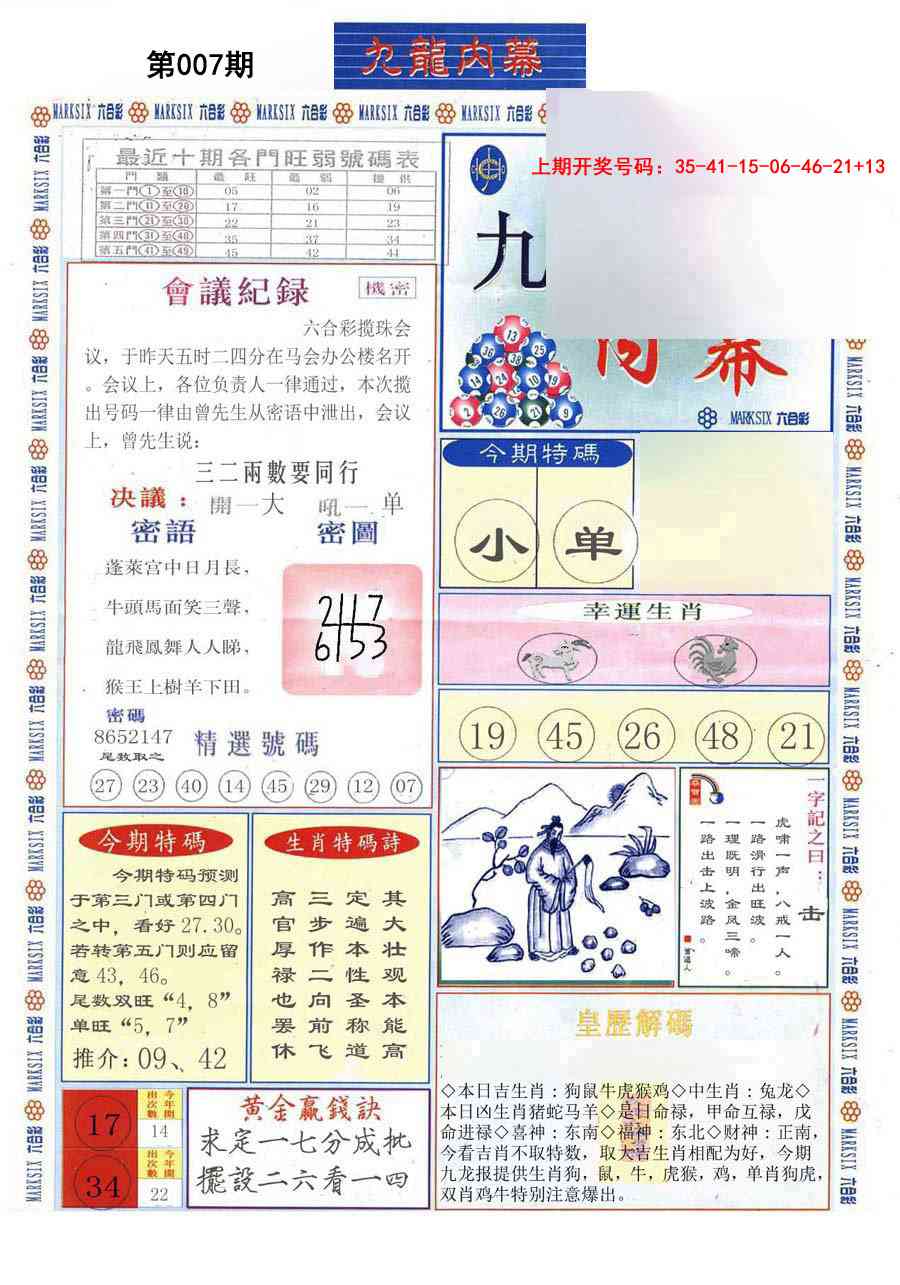 第007期
九龍内幕
MARKSIX 六合彩 MARKSIX 六合彩 MARKSIX 六合彩 MARKSIX 六合彩 MARKSIX 六合彩
最近十期各門旺弱號碼表
門 類 最 旺 最 弱 提 供
第一門①至⑩ 05 02 06
第二門⑪至⑳ 17 16 19
第三門㉑至㉚ 22 21 23
第四門㉛至㊵ 35 37 34
第五門㊶至㊾ 45 42 44
上期开奖号码：35-41-15-06-46-21+13
九
内幕
MARKSIX 六合彩
會議紀録
機密
六合彩揽珠会
议，于昨天五时二四分在马会办公楼名开
。会议上，各位负责人一律通过，本次揽
出号码一律由曾先生从密语中泄出，会议
上，曾先生说：
三二兩數要同行
决議：開一大 吼一单
密語 密圖
蓬萊宫中日月長，
牛頭馬面笑三聲，
龍飛鳳舞人人睇，
猴王上樹羊下田。
2117
6153
密碼
8652147
尾数取之
精選號碼
27 23 40 14 45 29 12 07
今期特碼
小 单
幸運生肖
19 45 26 48 21
一字記之曰：
击
虎啸一声，八戒一人。
一路滑行出旺波。
一理既明，金凤三啼。
一路出击上波路。
曾道人
今期特碼
今期特码预测
于第三门或第四门
之中，看好27.30。
若转第五门则应留
意43，46。
尾数双旺“4，8”
单旺“5，7”
推介：09、42
生肖特碼詩
高三定其
官步遍大
厚作本壮
禄二性观
也向圣本
罢前称能
休飞道高
17
今年開出次數
14
34
今年開出次數
22
黄金赢錢訣
求定一七分成批
擺設二六看一四
皇歷解碼
◇本日吉生肖：狗鼠牛虎猴鸡◇中生肖：兔龙◇
本日凶生肖猪蛇马羊◇是日命禄，甲命互禄，戊
命进禄◇喜神：东南◇福神：东北◇财神：正南，
今看吉肖不取特数，取大吉生肖相配为好，今期
九龙报提供生肖狗，鼠，牛，虎猴，鸡，单肖狗虎，
双肖鸡牛特别注意爆出。